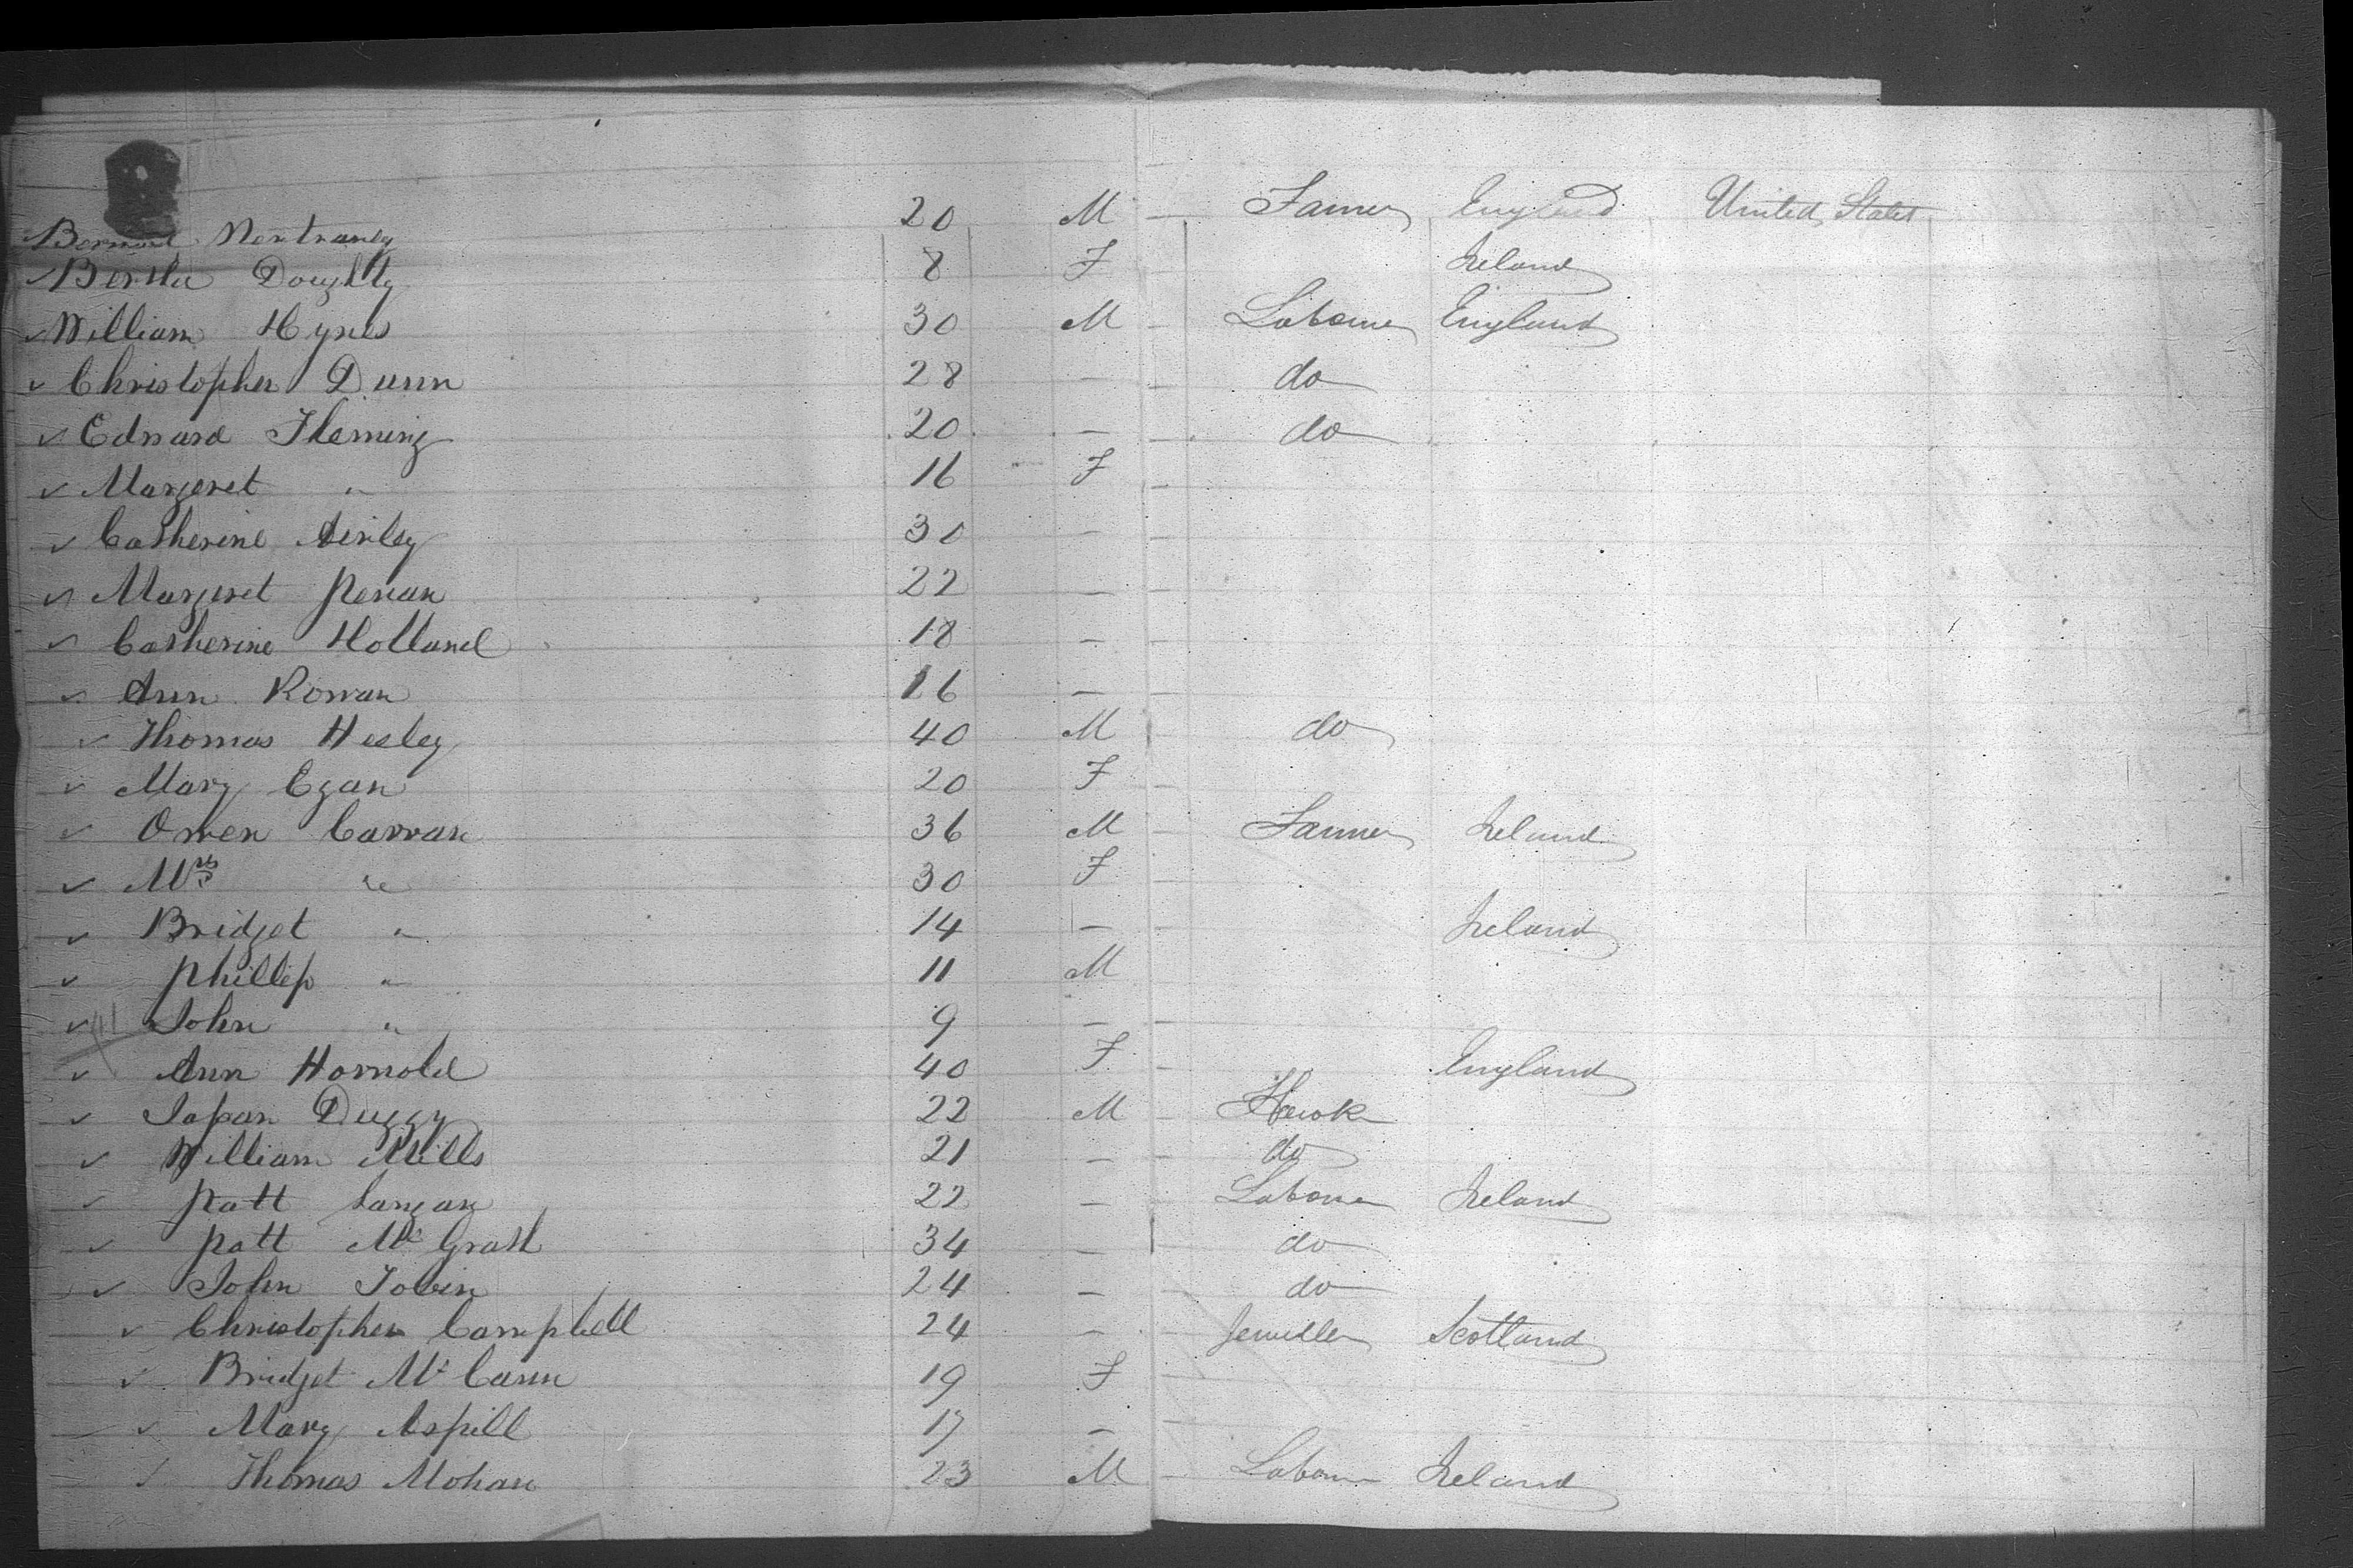 Bernard 20 M - Farmer England United States
Bertha Doughtty 8 F Ireland
William Hynes 30 M - Labourer England
Christopher Dunn 28 - - do
Edward Fleming 20 - - do
Margeret " 16 F -
Catherine 30 - -
Margeret 22 - -
Catherine Holland 18 - -
Ann Rowan 16 - -
Thomas Hesley 40 M do
Mary Egan 20 F -
Owen Carran 36 M - Farmer Ireland
Mrs " 30 F -
Bridget " 14 - Ireland
Phillip " 11 M
John " 9 - -
Ann 40 F - England
Duggy 22 M -
William Mills 21 - - do
Patt 22 - Labourer Ireland
Patt McGrath 34 - do
John Tobin 24 - do
Christopher Campbell 24 - - Jeweller Scotland
Bridget McCann 19 F -
Mary Aspill 17 - -
Thomas Mohan 23 M - Labourer Ireland